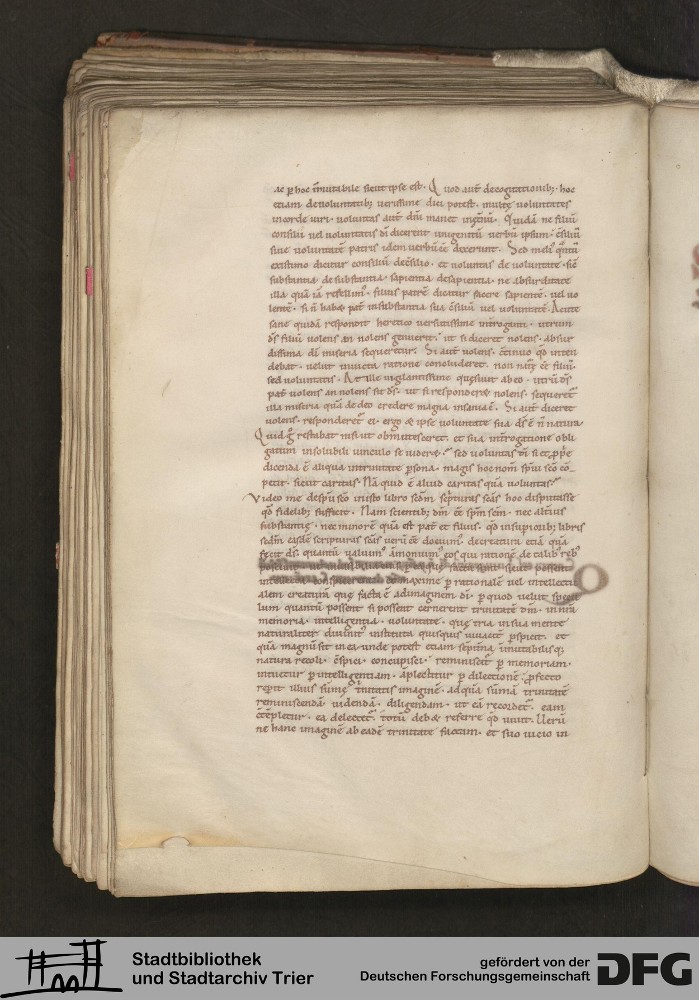 ac p hoc inmutabile sicut ipse est. Quod aut de cogitationib; hoc
etiam de voluntatib; verissime dici potest. multę voluntates
in corde viri. voluntas aut dni manet in etnu. Quida ne filiu
consilii vel voluntatis di dicerent unigenitu verbu ipsum. csiliu
sive voluntate patris idem verbu ee dixerunt. Sed meli quntu
existimo dicitur consiliu de csilio. et voluntas de voluntate. sic
substantia de substantia. sapientia de sapientia. ne absurditate
illa qua ia refellim. filius patre dicatur facere sapiente. vel vo
lente. si n habet pat in substantia sua csiliu vel voluntate. Acute
sane quida respondit heretico versutissime introganti. utrum
ds filiu volens an nolens genuerit. ut si diceret nolens. absur
dissima di miseria sequeretur. Si aut volens. ctinuo qd inten
debat. velut invicta ratione concluderet. non nature ee filiu.
sed voluntatis. At ille vigilantissime quęsivit ab eo. utru ds
pat volens an nolens sit ds. ut si responderet nolens. sequeret
illa miseria qua de deo credere magna insania e. Si aut diceret
volens. responderet ei. ergo et ipse voluntate sua ds e n natura
Quid g restabat nisi ut obmutesceret. et sua introgatione obli
gatum insolubili vinculo se videret. sed voluntas di si et pprie
dicenda e aliqua in trinitate psona. magis hoc nom spui sco co
petit. sicut caritas. Na quid e aliud caritas qua voluntas.
Video me de spu sco in isto libro sedm scripturas scas hoc disputasse
qd fidelib; sufficit. Nam scientib; dm ee spm scm. nec altius
substantię. nec minore qua est pat et filius. qd in supiorib; libris
sedm easde scripturas scas veru ee docuim. de creatura etia qua
fecit ds. quantu valuim. amonuim eos qui ratione de talib reb
poscunt
intellecta conspicerent maxime p rationale vel intellectu
alem creatura quę facta e ad imaginem di. p quod velut specu
lum quantu possent si possent cernerent trinitate dm. in nra
memoria. intelligentia. voluntate. quę tria in sua mente
naturaliter divinit instituta quisquis vivacit pspicit. et
qua magnu sit in ea unde potest etiam sepitna inmutabilisq;
natura recoli. cspici. concupisci. reminiscit p memoriam.
intuetur p intelligentiam. aplectitur p dilectione. pfecto
repit illius sumę trinitatis imagine. ad qua suma trinitate
reminiscenda. videnda. diligendam. ut ea recordet. eam
ctepletur. ea delectet. totu debet referre qd vivit. Veru
ne hanc imagine ab eade trinitate factam. et suo vicio in
Stadtbibliothek
und Stadtarchiv Trier
gefördert von der
Deutschen Forschungsgemeinschaft
DFG